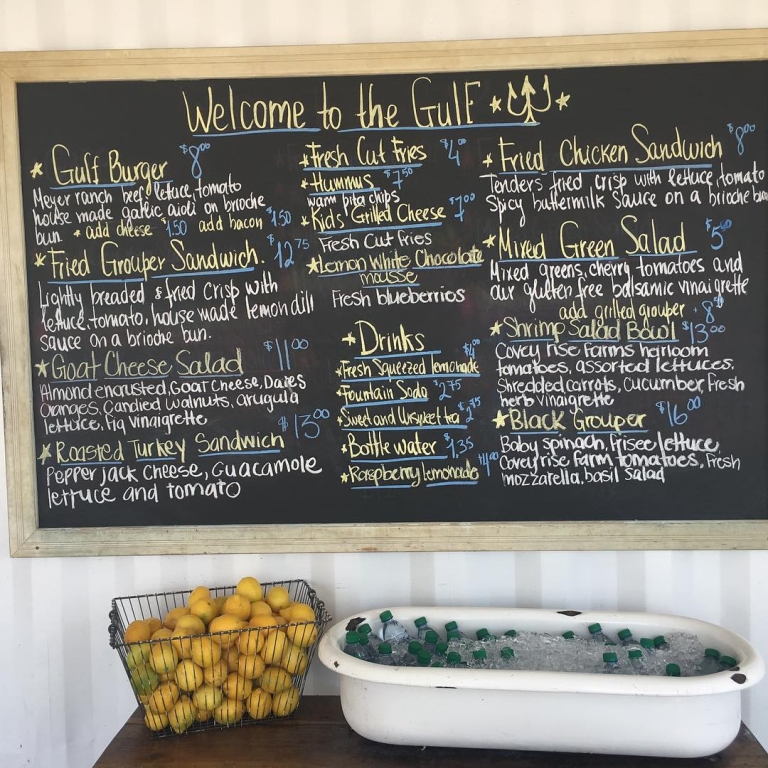 Welcome to the Gulf
Gulf Burger $8⁰⁰
Meyer ranch beef lettuce, tomato
house made garlic aioli on brioche
bun * add cheese $1.50 add bacon $1.50
Fried Grouper Sandwich. $12⁷⁵
Lightly breaded & fried crisp with
lettuce, tomato, house made lemon dill
sauce on a brioche bun.
Goat Cheese Salad $11⁰⁰
Almond encrusted, Goat cheese, Dates
Oranges, Candied walnuts, arugula
lettuce, Fig vinaigrette
Roasted Turkey Sandwich $13⁰⁰
Pepper jack cheese, Guacamole
lettuce and tomato
Fresh Cut Fries $4⁰⁰
Hummus $7⁵⁰
warm pita chips
Kids' Grilled Cheese $7⁰⁰
Fresh Cut fries
Lemon White Chocolate
mousse
Fresh blueberries
Drinks
Fresh Squeezed lemonade $4⁰⁰
Fountain Soda $2⁷⁵
Sweet and Unsweet tea $2⁷⁵
Bottle water $1.35
Raspberry lemonade $4⁰⁰
Fried Chicken Sandwich $8⁰⁰
Tenders fried crisp with lettuce, tomato
Spicy buttermilk sauce on a brioche bun
Mixed Green Salad $5⁰⁰
Mixed greens, cherry tomatoes and
our gluten free balsamic vinaigrette
add grilled grouper + 8⁰⁰
Shrimp Salad Bowl $13⁰⁰
Covey rise Farms heirloom
tomatoes, assorted lettuces.
Shredded carrots, cucumber, fresh
herb vinaigrette
Black Grouper $16⁰⁰
Baby spinach, frisee lettuce
Covey rise Farm tomatoes, fresh
mozzarella, basil salad